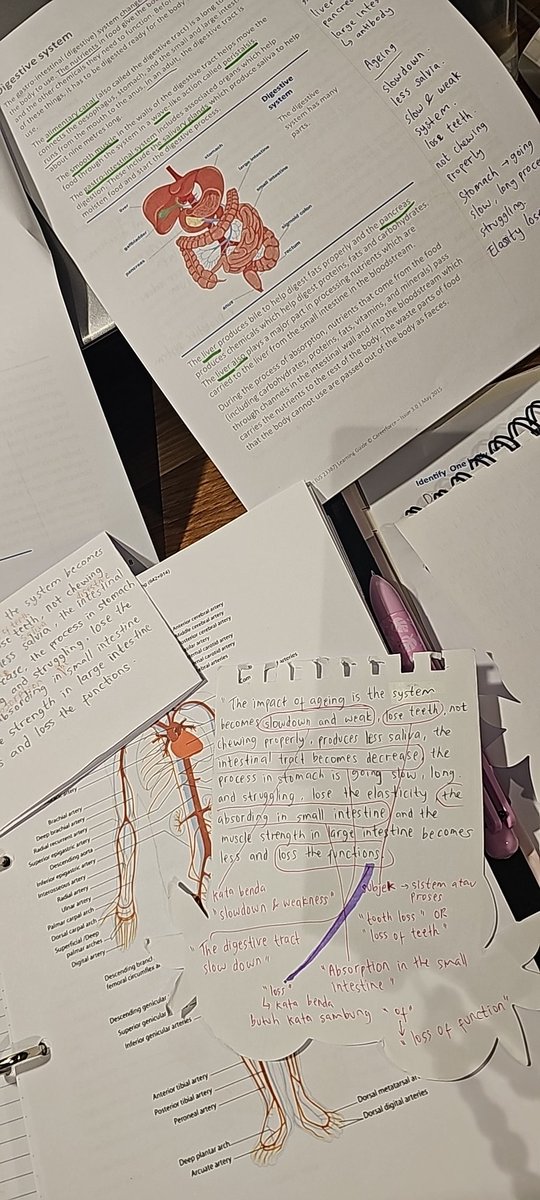 Digestive system
The gastrointestinal (digestive) system
of these things, it has to be digested ready for the body
use.
The alimentary canal (also called the digestive tract) is a long
runs from the mouth to the anus. In an adult, the digestive tract is
about nine metres long.
The smooth muscle in the walls of the digestive tract helps move the
food through the system in a like action called peristalsis
The gastrointestinal system includes associated organs which help
digestion. These include the salivary glands which produce saliva to help
moisten food and start the digestive process.
Digestive
system
The digestive
system has many
parts.
stomach
large intestine
small intestine
liver
gallbladder
pancreas
sigmoid colon
rectum
anus
The liver produces bile to help digest fats properly and the pancreas
produces chemicals which help digest proteins, fats and carbohydrates.
The liver also pays a major part in processing nutrients which are
carried to the liver from the small intestine in the bloodstream.
During the process of absorption, nutrients that come from the food
(including carbohydrates, proteins, fats, vitamins, and minerals) pass
through channels in the intestinal wall and into the bloodstream which
carries the nutrients to the rest of the body. The waste parts of food
that the body cannot use are passed out of the body as faeces.
Learning Guide © Careerforce – Issue 3.0 | May 2015
liver
large intes
↳ antibody
Ageing
slowdown.
less salvia.
slow & weak
system.
lose teeth
not chewing
properly
stomach → going
slow, long proce
struggling.
Elasity lose
Identify One
the system becomes
ose teeth, not chewing
less salvia, the intestinal
the process in stomach
and struggling, lose the
absording in small intestine
e strength in large intestine
s and loss the functions.
Anterior cerebral artery
Middle cerebral artery
Posterior cerebral artery
arteries
Brachial artery
Deep brachial artery
Radial recurrent artery
Superior epigastric artery
Descending aorta
Inferior epigastric artery
Interosseous artery
Radial artery
Ulnar artery
Palmar carpal arch
Dorsal carpal arch
Superficial /Deep
palmar arches
Digital artery
"The impact of ageing is the system
becomes slowdown and weak, lose teeth, not
chewing properly, produces less saliva, the
intestinal tract becomes decrease, the
process in stomach is going slow, long.
and struggling, lose the elasticity (the
absording in small intestine) and the
muscle strength in large intestine becomes
less and loss the functions.
kata benda
"slowdown & weakness"
subjek → sistem atau
proses
"tooth loss" OR
"loss of teeth"
"The digestive tract
slow down"
"loss"
↳ kata benda
butuh kata sambung "of"
"Absorption in the small
intestine"
↓
"loss of function"
Descending branch
femoral circumflex a
Descending genicular
Superior genicular
Inferior genicular arteries
Anterior tibial artery
Posterior tibial artery
Peroneal artery
Deep plantar arch
Arcuate artery
Dorsal metatarsal
Dorsal digital arteries